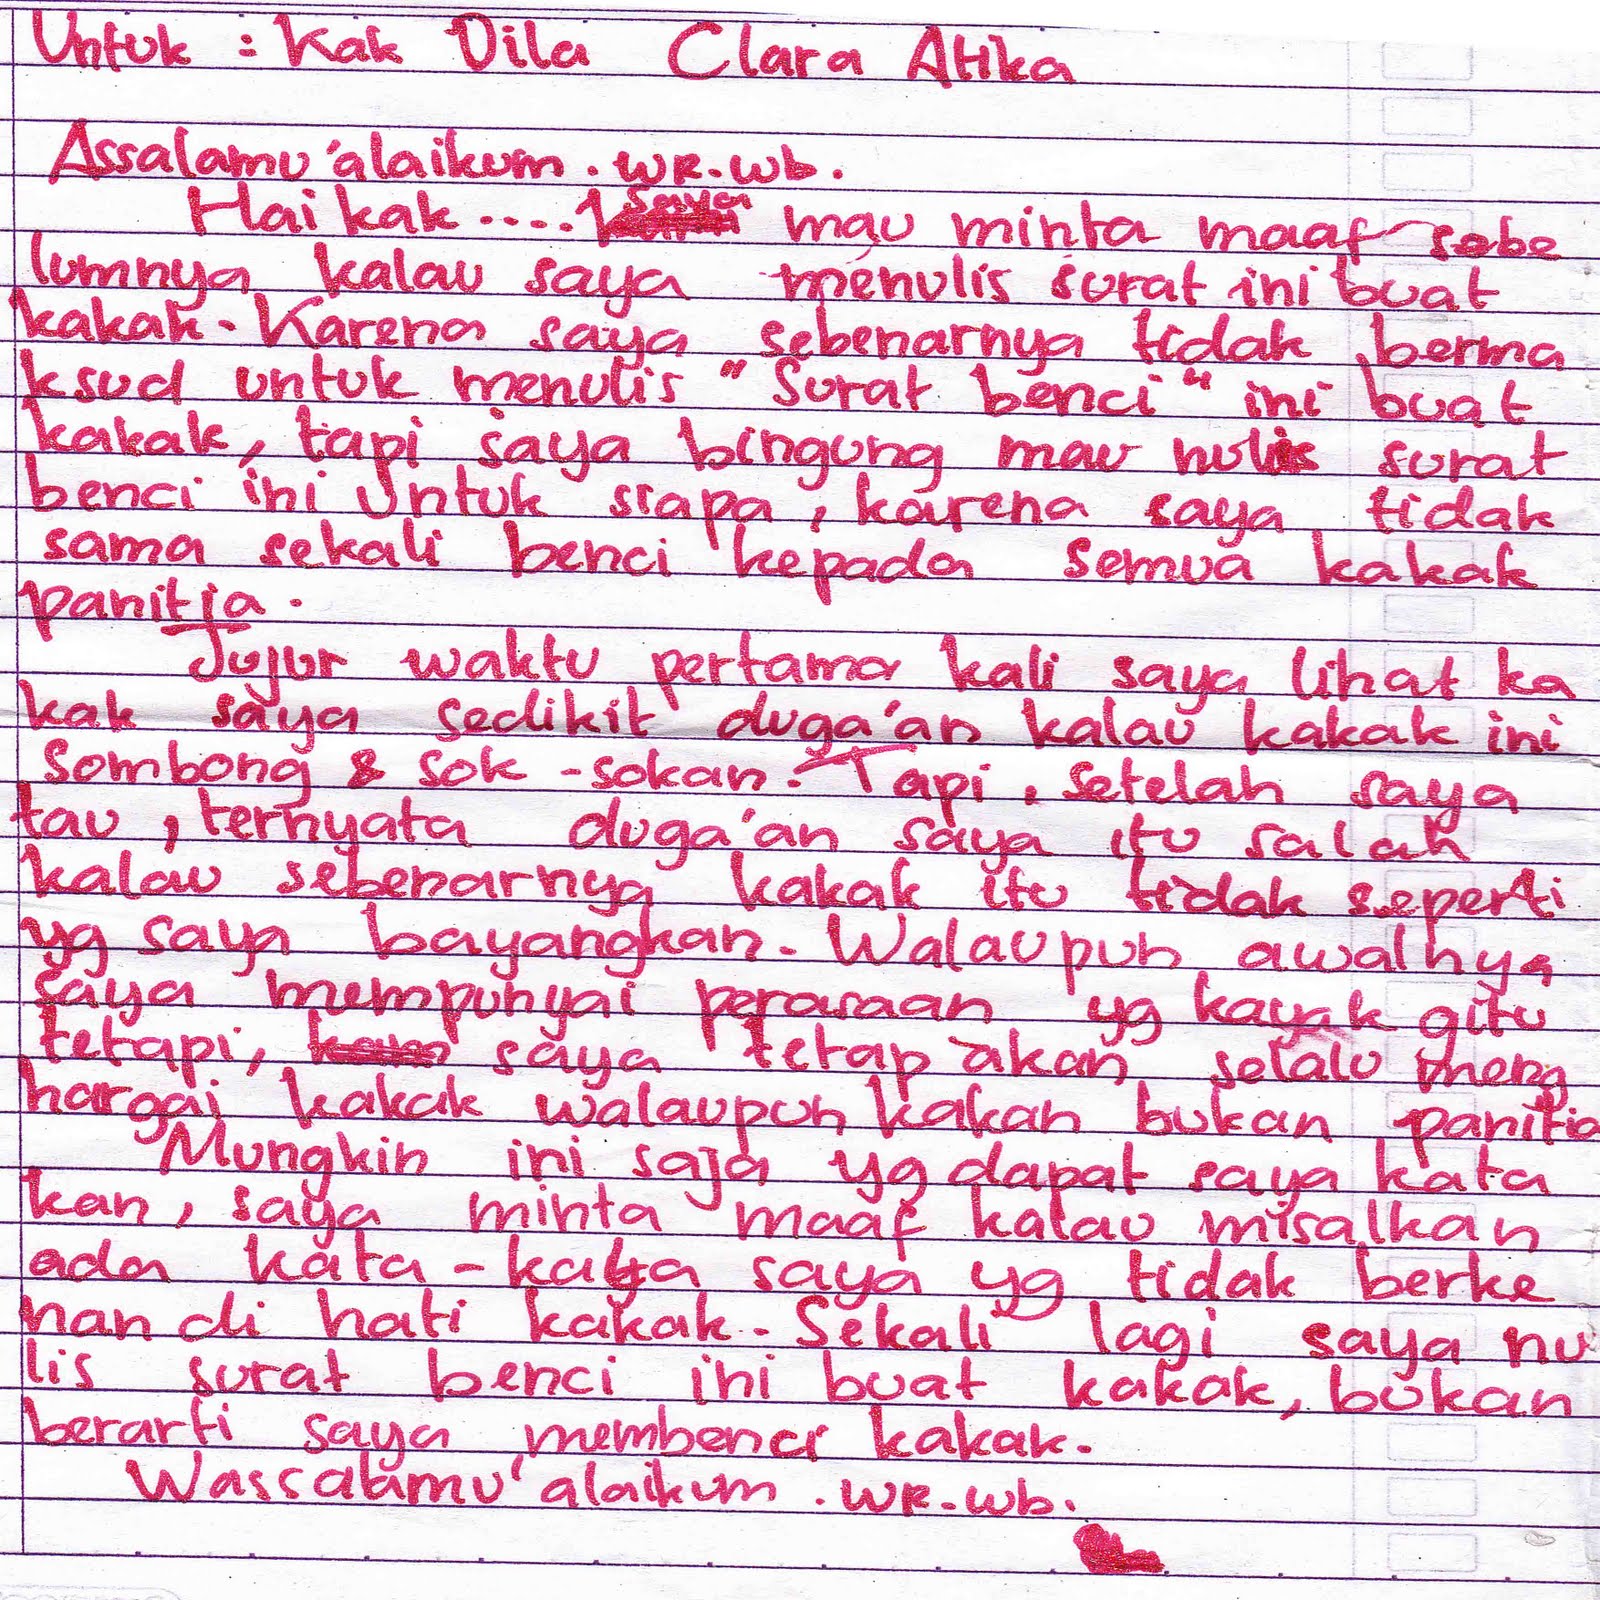 Untuk : Kak Dila Clara Atika
Assalamu'alaikum . WR.Wb.
Hai kak .... saya mau minta maaf sebe
lumnya kalau saya menulis surat ini buat
kakak. Karena saya sebenarnya tidak berma
ksud untuk menulis "Surat benci" ini buat
kakak, tapi saya bingung mau nulis surat
benci ini Untuk siapa, karena saya tidak
sama sekali benci kepada semua kakak
panitia.
Jujur waktu pertama kali saya lihat ka
kak saya sedikit duga'an kalau kakak ini
sombong & sok -sokan. Tapi, setelah saya
tau, ternyata duga'an saya itu salah
kalau sebenarnya kakak itu tidak seperti
yg saya bayangkan. Walaupun awalnya
saya mempunyai perasaan yg kayak gitu
tetapi, saya tetap akan selalu meng
hargai kakak walaupun kakan bukan panitia
Mungkin ini saja yg dapat saya kata
kan, saya minta maaf kalau misalkan
ada kata-kata saya yg tidak berke
nan di hati kakak. Sekali lagi saya nu
lis surat benci ini buat kakak, bukan
berarti saya membenci kakak.
Wassalamu'alaikum . WR.Wb.